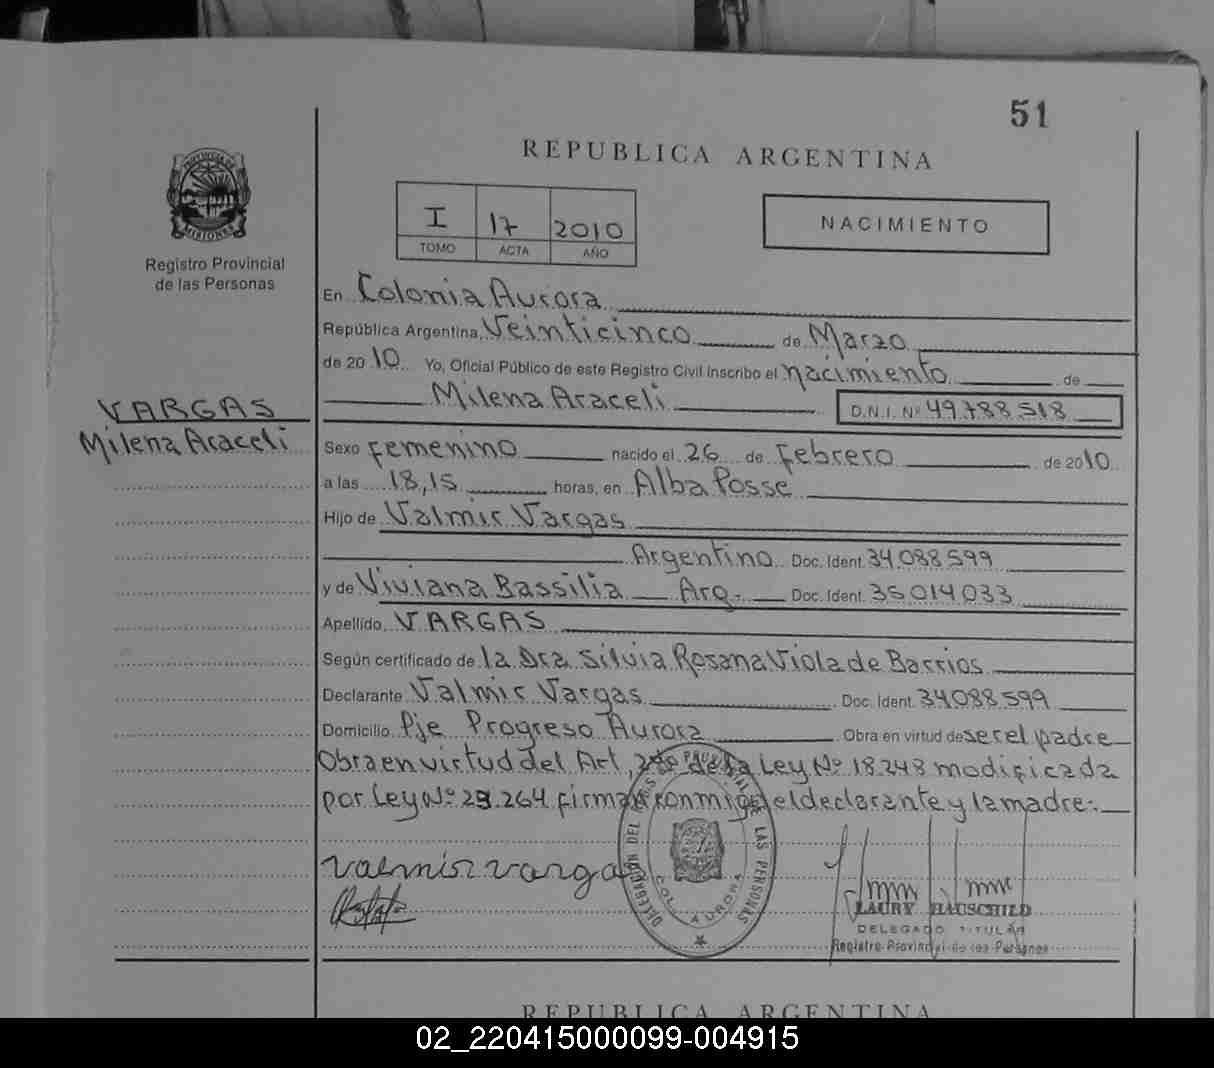 51
REPUBLICA ARGENTINA
PROVINCIA DE
MISIONES
Registro Provincial
de las Personas
I 17 2010
TOMO ACTA AÑO
NACIMIENTO
En Colonia Aurora
República Argentina, Veinticinco de Marzo
de 2010 Yo, Oficial Público de este Registro Civil inscribo el nacimiento de
Milena Araceli D.N.I. Nº 49.788.518
VARGAS
Milena Araceli
Sexo femenino nacido el 26 de febrero de 2010
a las 18,15 horas, en Alba Posse
Hijo de Valmir Vargas
Argentino Doc. Ident. 34.088.599
y de Viviana Bassilia Arg. Doc. Ident. 35014033
Apellido, VARGAS
Según certificado de la Dra. Silvia Rosana Viola de Barrios
Declarante Valmir Vargas Doc. Ident. 34088.599
Domicilio Pje Progreso Aurora Obra en virtud de ser el padre
Obra en virtud del Art. de la Ley Nº 18.248 modificada
por Ley Nº 23.264 firman conmigo el declarante y la madre.-
valmir varga
DELEGACION DEL REGISTRO PROVINCIAL DE LAS PERSONAS
COL. AURORA
LAURY HAUSCHILD
DELEGADO TITULAR
Registro Provincial de las Personas
REPUBLICA ARGENTINA
02_220415000099-004915